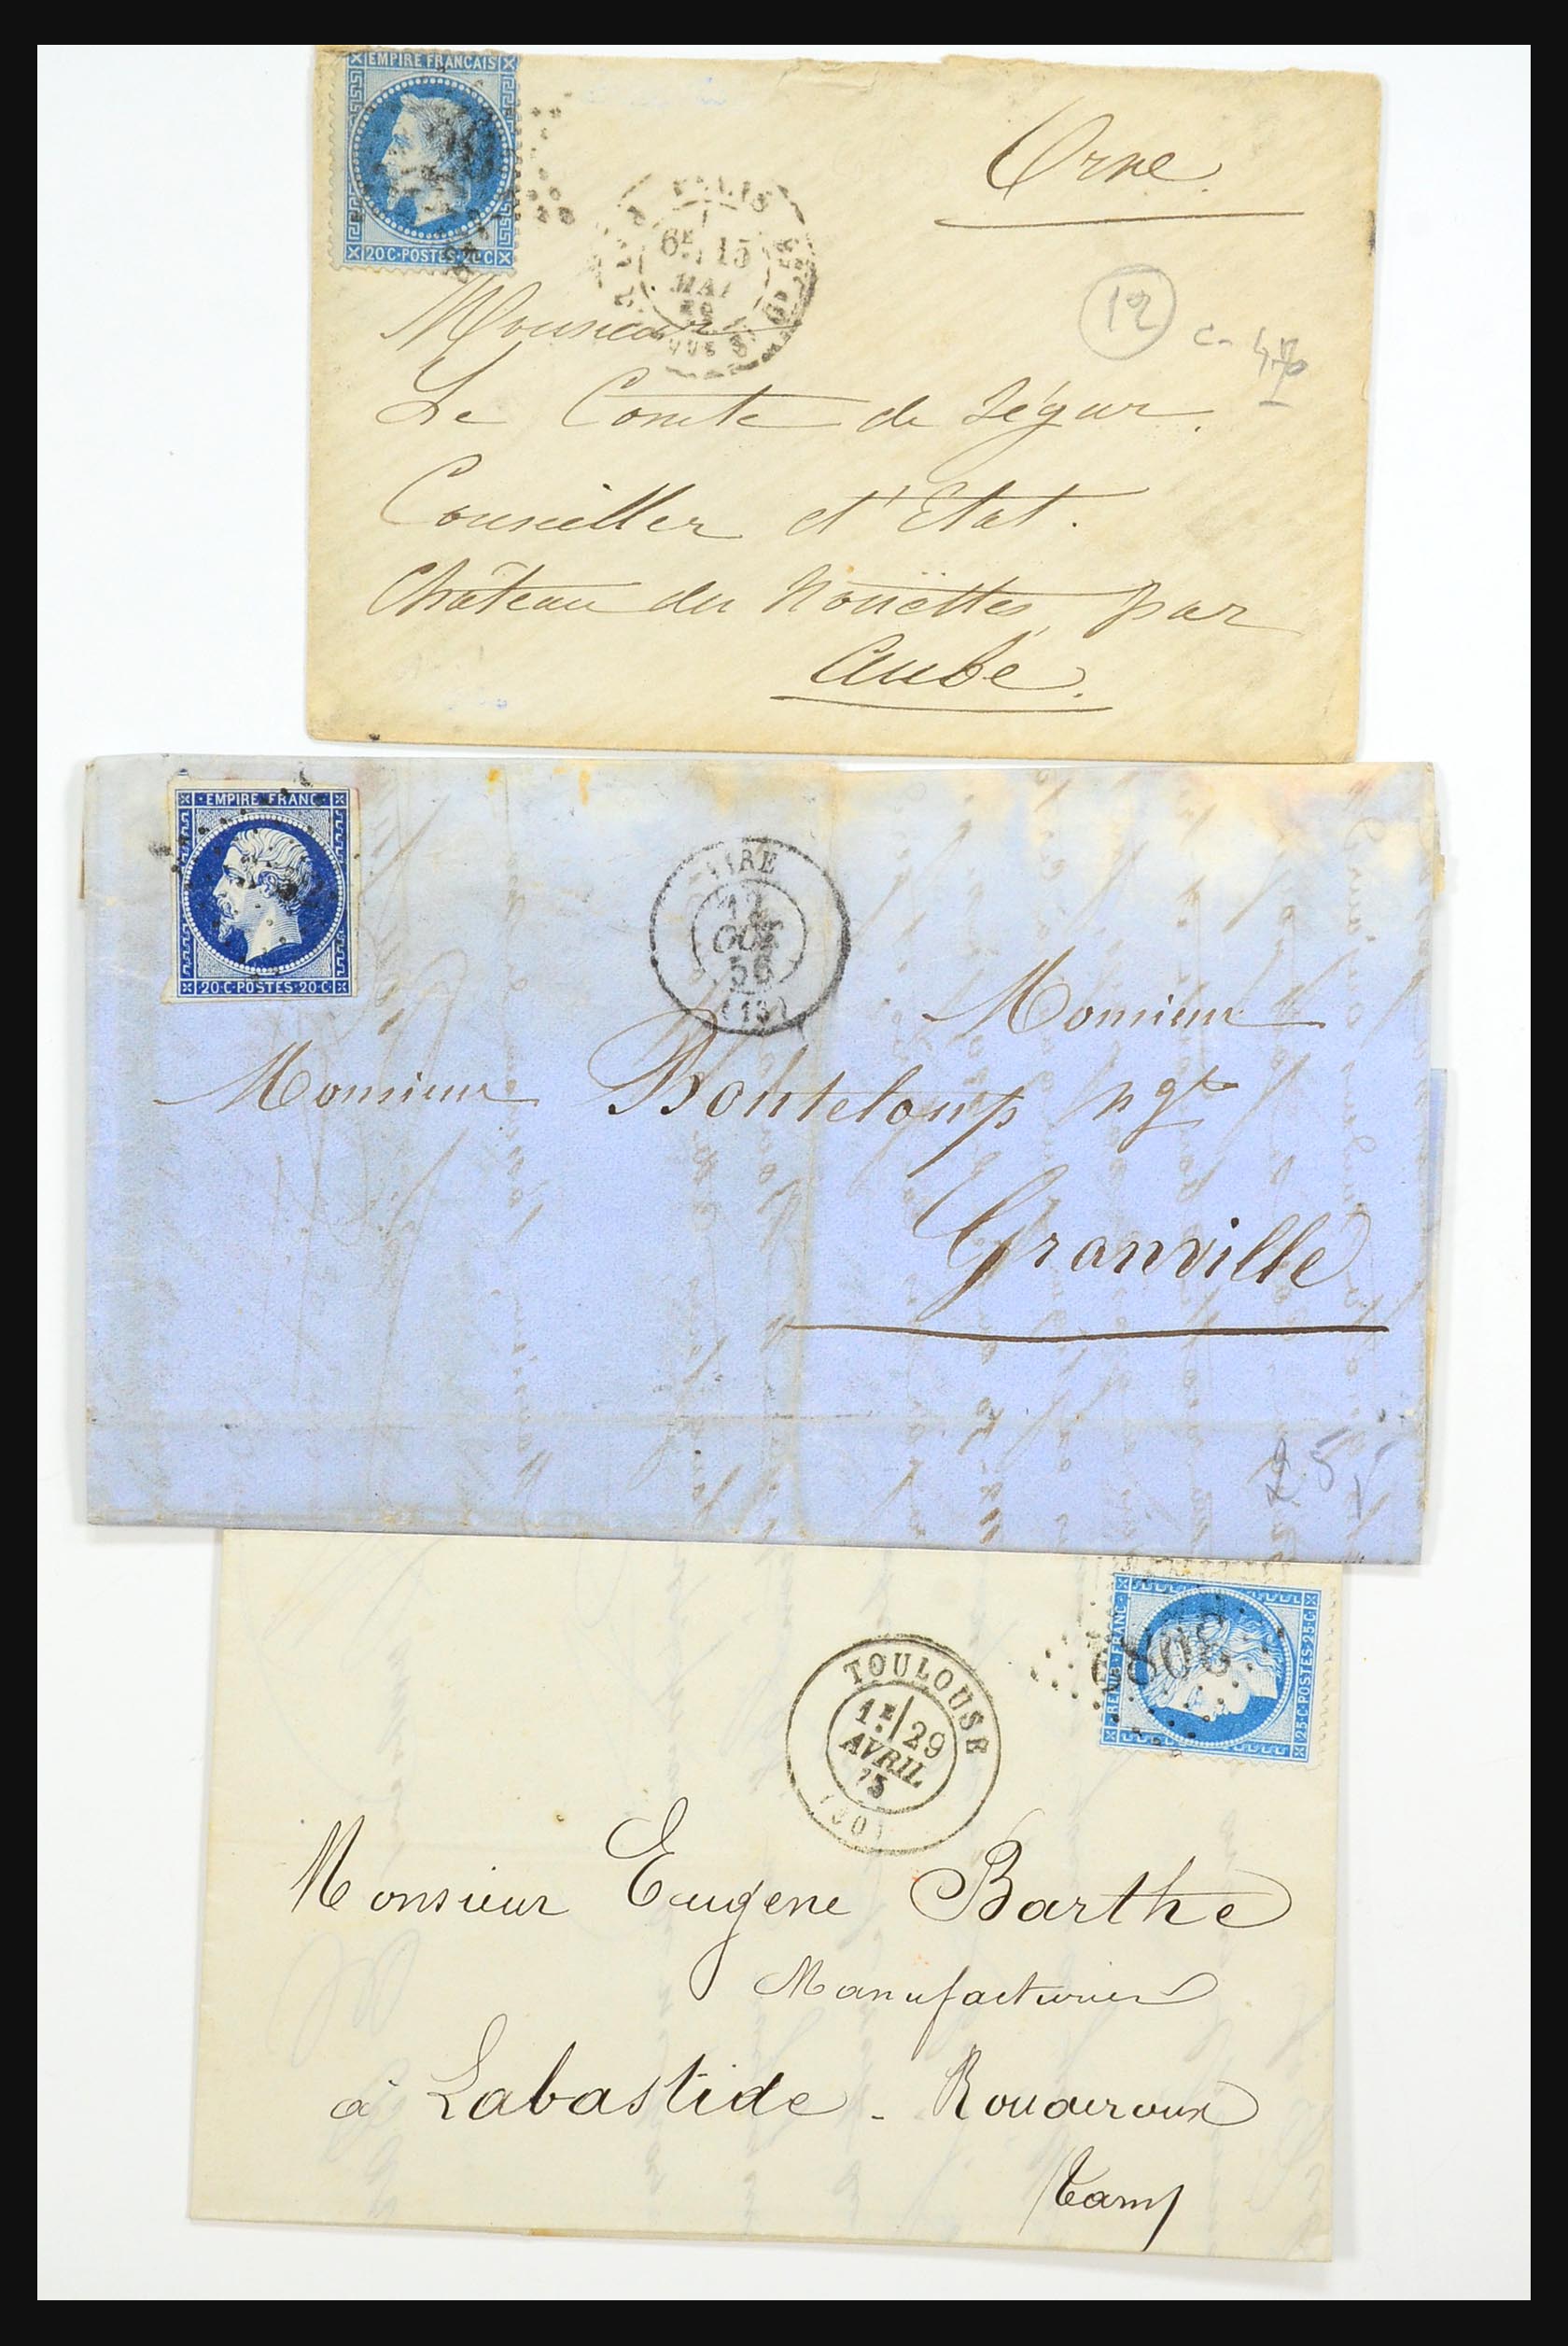 EMPIRE FRANÇAIS
20 C · POSTES · 20 C
Orne
PARIS
6E 15
MAI
12
c. 470
Monsieur
Le Comte de Ségur.
Conseiller d'Etat.
Château des Nouëttes, par
Aube.
EMPIRE FRANC
20 · C · POSTES · 20 · C
VIRE
12
OCT
56
(13)
Monsieur
Monsieur Bonteloup ngt
Granville
25
REPUB · FRANC
25 · C · POSTES · 25 · C
TOULOUSE
1E 29
AVRIL
75
(30)
Monsieur Eugène Barthe
Manufacturier
à Labastide - Rouairoux
Tarn